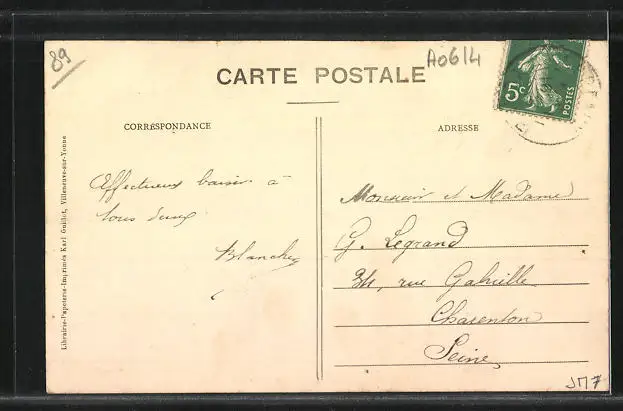 89
A0614
CARTE POSTALE
5c
POSTES
CORRESPONDANCE
ADRESSE
Affectueux baiser à
tous deux
Blanche
Monsieur et Madame
G. Legrand
34, rue Gabrielle
Charenton
Seine
Librairie-Papeterie-Imprimés Karl Guillot, Villeneuve-sur-Yonne